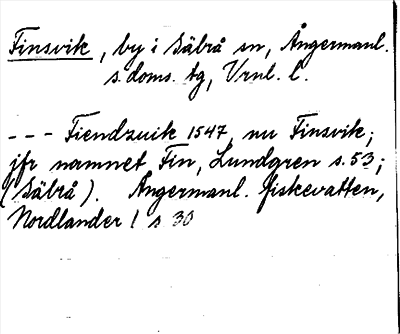 Finsvik, by i Säbrå sn, Ångermanl.
s. doms. tg, Vrnl. l.
--- Fiendzuik 1547, nu Finsvik;
jfr namnet Fin, Lundgren s. 53;
(Säbrå). Ångermanl. fiskevatten,
Nordlander 1 s 30